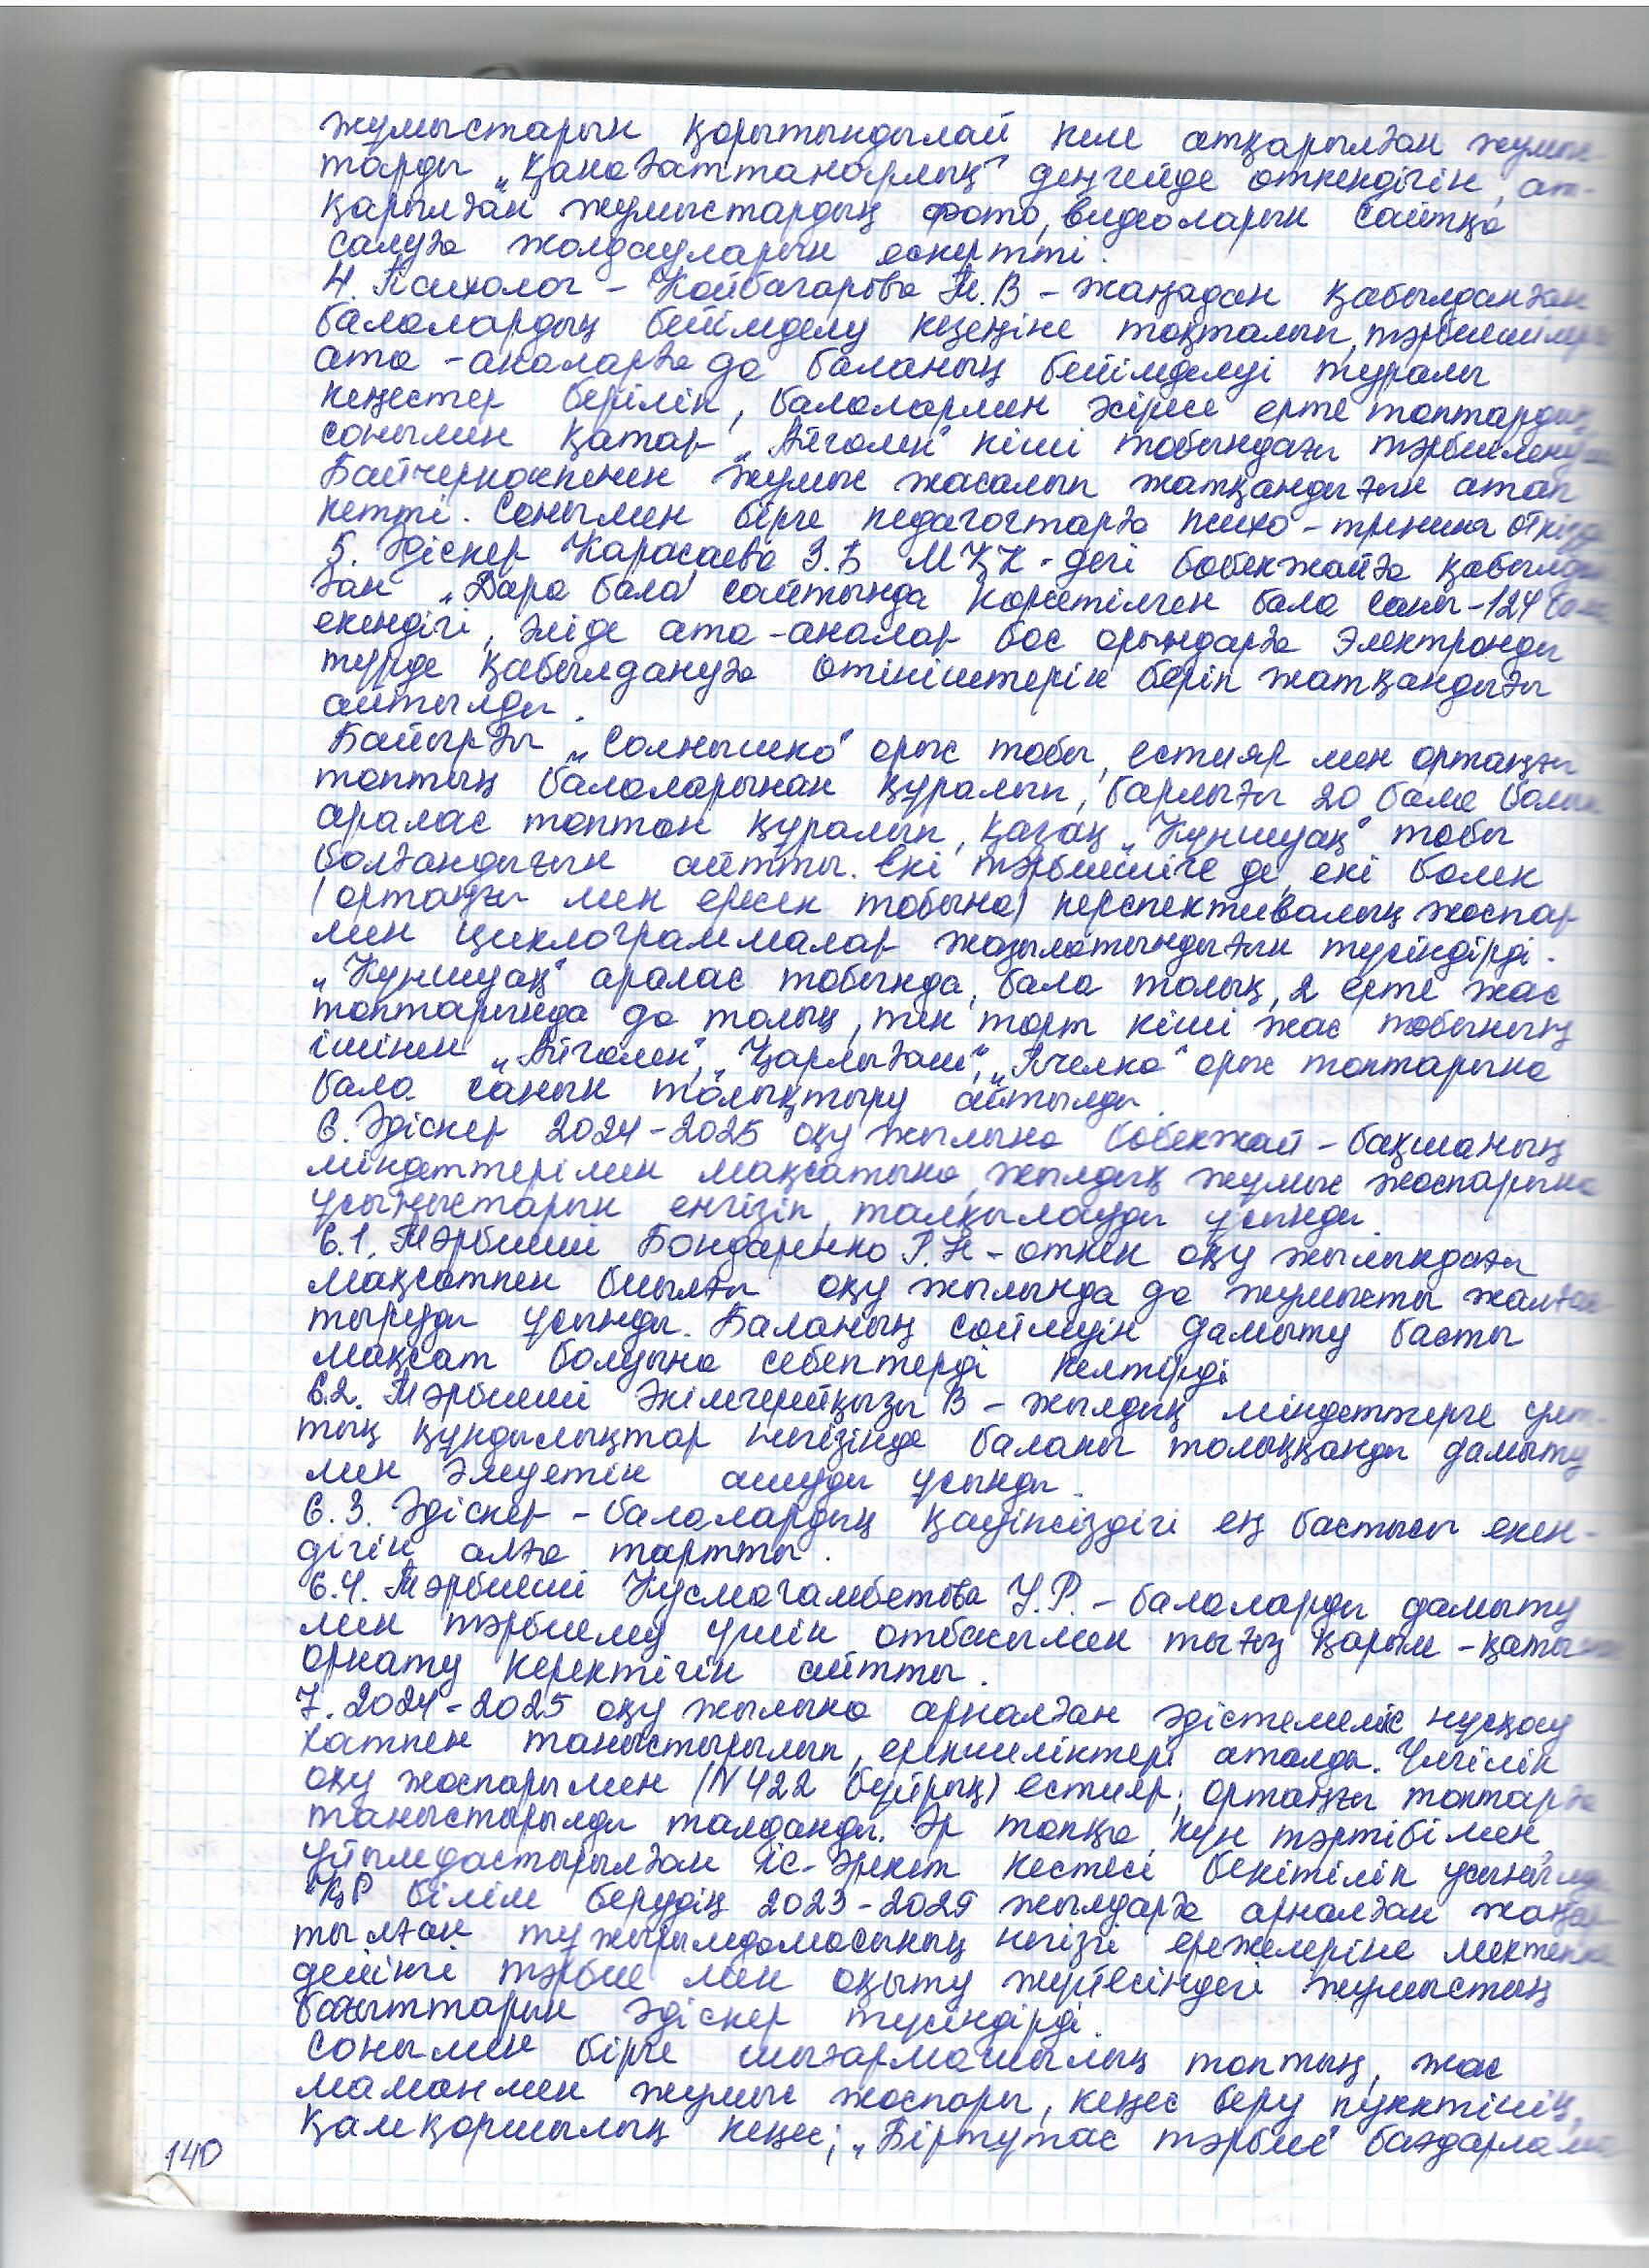 жұмыстарын қорытындылай келе атқарылған жұмыс-
тарды „Қанағаттанарлық" деңгейде өткендігін, ат-
қарылған жұмыстардың фото, видеоларын сайтқа
салуға жолдауларын ескертті.
4. Психолог – Койбагарова М.В – жаңадан қабылданған
балалардың бейімделу кезеңіне тоқталып, тәрбиешілерге
ата-аналарға да баланың бейімделуі туралы
кеңестер беріліп, балалармен әсіресе ерте топтардың
сонымен қатар „Айгөлек" кіші тобындағы тәрбиеленуші
жұмыс жасалып жатқандығын атап
кетті. Сонымен бірге педагогтарға психо-тренинг өткізді
5. Әдіскер Карасаева З.Б МҚК-дегі бөбекжайға қабылдан-
ған „Дара бала" сайтында көрсетілген бала саны-124 бала
екендігі, әліде ата-аналар бос орындарға электронды
түрде қабылдануға өтініштерін беріп жатқандығы
айтылды.
Байырғы „Солнышко" орыс тобы, естияр мен ортаңғы
топтың балаларынан құралып, барлығы 20 бала болып
аралас топтан құралып, қазақ „Күншуақ" тобы
болғандығын айтты. Екі тәрбиешіге де, екі бөлек
(ортаңғы мен ересек тобына) перспективалық жоспар
мен циклограммалар жазылатындығын түсіндірді.
„Күншуақ" аралас тобында, бала толық, 2 ерте жас
топтарында да толық, тек төрт кіші жас тобының
ішінен „Айгөлек", „Қарлығаш", „Пчелка" орыс топтарына
бала санын толықтыру айтылды.
6. Әдіскер 2024-2025 оқу жылына бөбекжай-бақшаның
міндеттерімен мақсатына, жылдық жұмыс жоспарына
ұсыныстарын енгізіп, талқылауды ұсынды.
6.1. Тәрбиеші Бондаренко Р.Н – өткен оқу жылындағы
мақсатпен биылғы оқу жылында да жұмысты жалғас-
тыруды ұсынды. Баланың сөйлеуін дамыту басты
мақсат болуына себептерді келтірді
6.2. Тәрбиеші Әкімгерейқызы В – жылдық міндеттерге ұлт-
тық құндылықтар негізінде баланы толыққанды дамыту
мен әлеуетін ашуды ұсынды.
6.3. Әдіскер – балалардың қауіпсіздігі ең бастысы екен-
дігін алға тартты.
6.4. Тәрбиеші Кусмагамбетова У.Р. – балаларды дамыту
мен тәрбиелеу үшін отбасымен тығыз қарым-қатынас
орнату керектігін айтты.
7. 2024-2025 оқу жылына арналған әдістемелік нұсқау
хатпен таныстырылып, ерекшеліктері аталды. Үлгілік
оқу жоспарымен (N422 бұйрық) естияр; ортаңғы топтарға
таныстырылды талданды. Әр топқа күн тәртібімен,
ұйымдастырылған іс-әрекет кестесі бекітіліп ұсынылды
ҚР білім берудің 2023-2029 жылдарға арналған жаңар-
тылған тұжырымдамасының негізгі ережелеріне мектепке
дейінгі тәрбие мен оқыту жүйесіндегі жұмыстың
бағыттарын әдіскер түсіндірді.
Сонымен бірге шығармашылық топтың, жас
маманмен жұмыс жоспары, кеңес беру пунктінің,
Қамқоршылық кеңес; „Біртұтас тәрбие" бағдарлама
140